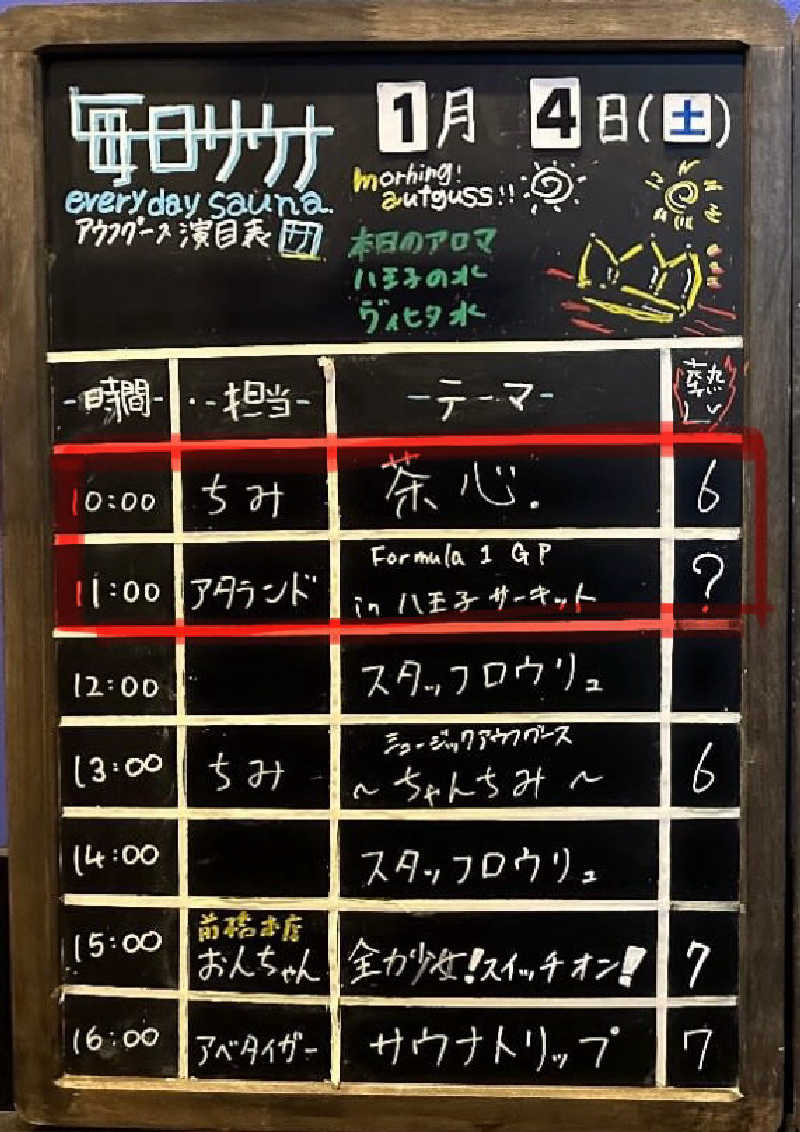 毎日サウナ
everyday sauna.
アウフグース演目表
1月4日(土)
morning!
autguss!!
本日のアロマ
八王子の水
ヴィヒタ水
-時間- -担当- -テーマ- 熱い
10:00 ちみ 茶心. 6
11:00 アタランド Formula 1 GP in 八王子サーキット ?
12:00 スタッフロウリュ
13:00 ちみ ミュージックアウフグース ~ちゃんちみ~ 6
14:00 スタッフロウリュ
15:00 前橋本店 おんちゃん 全力少女!スイッチオン! 7
16:00 アベタイガー サウナトリップ 7